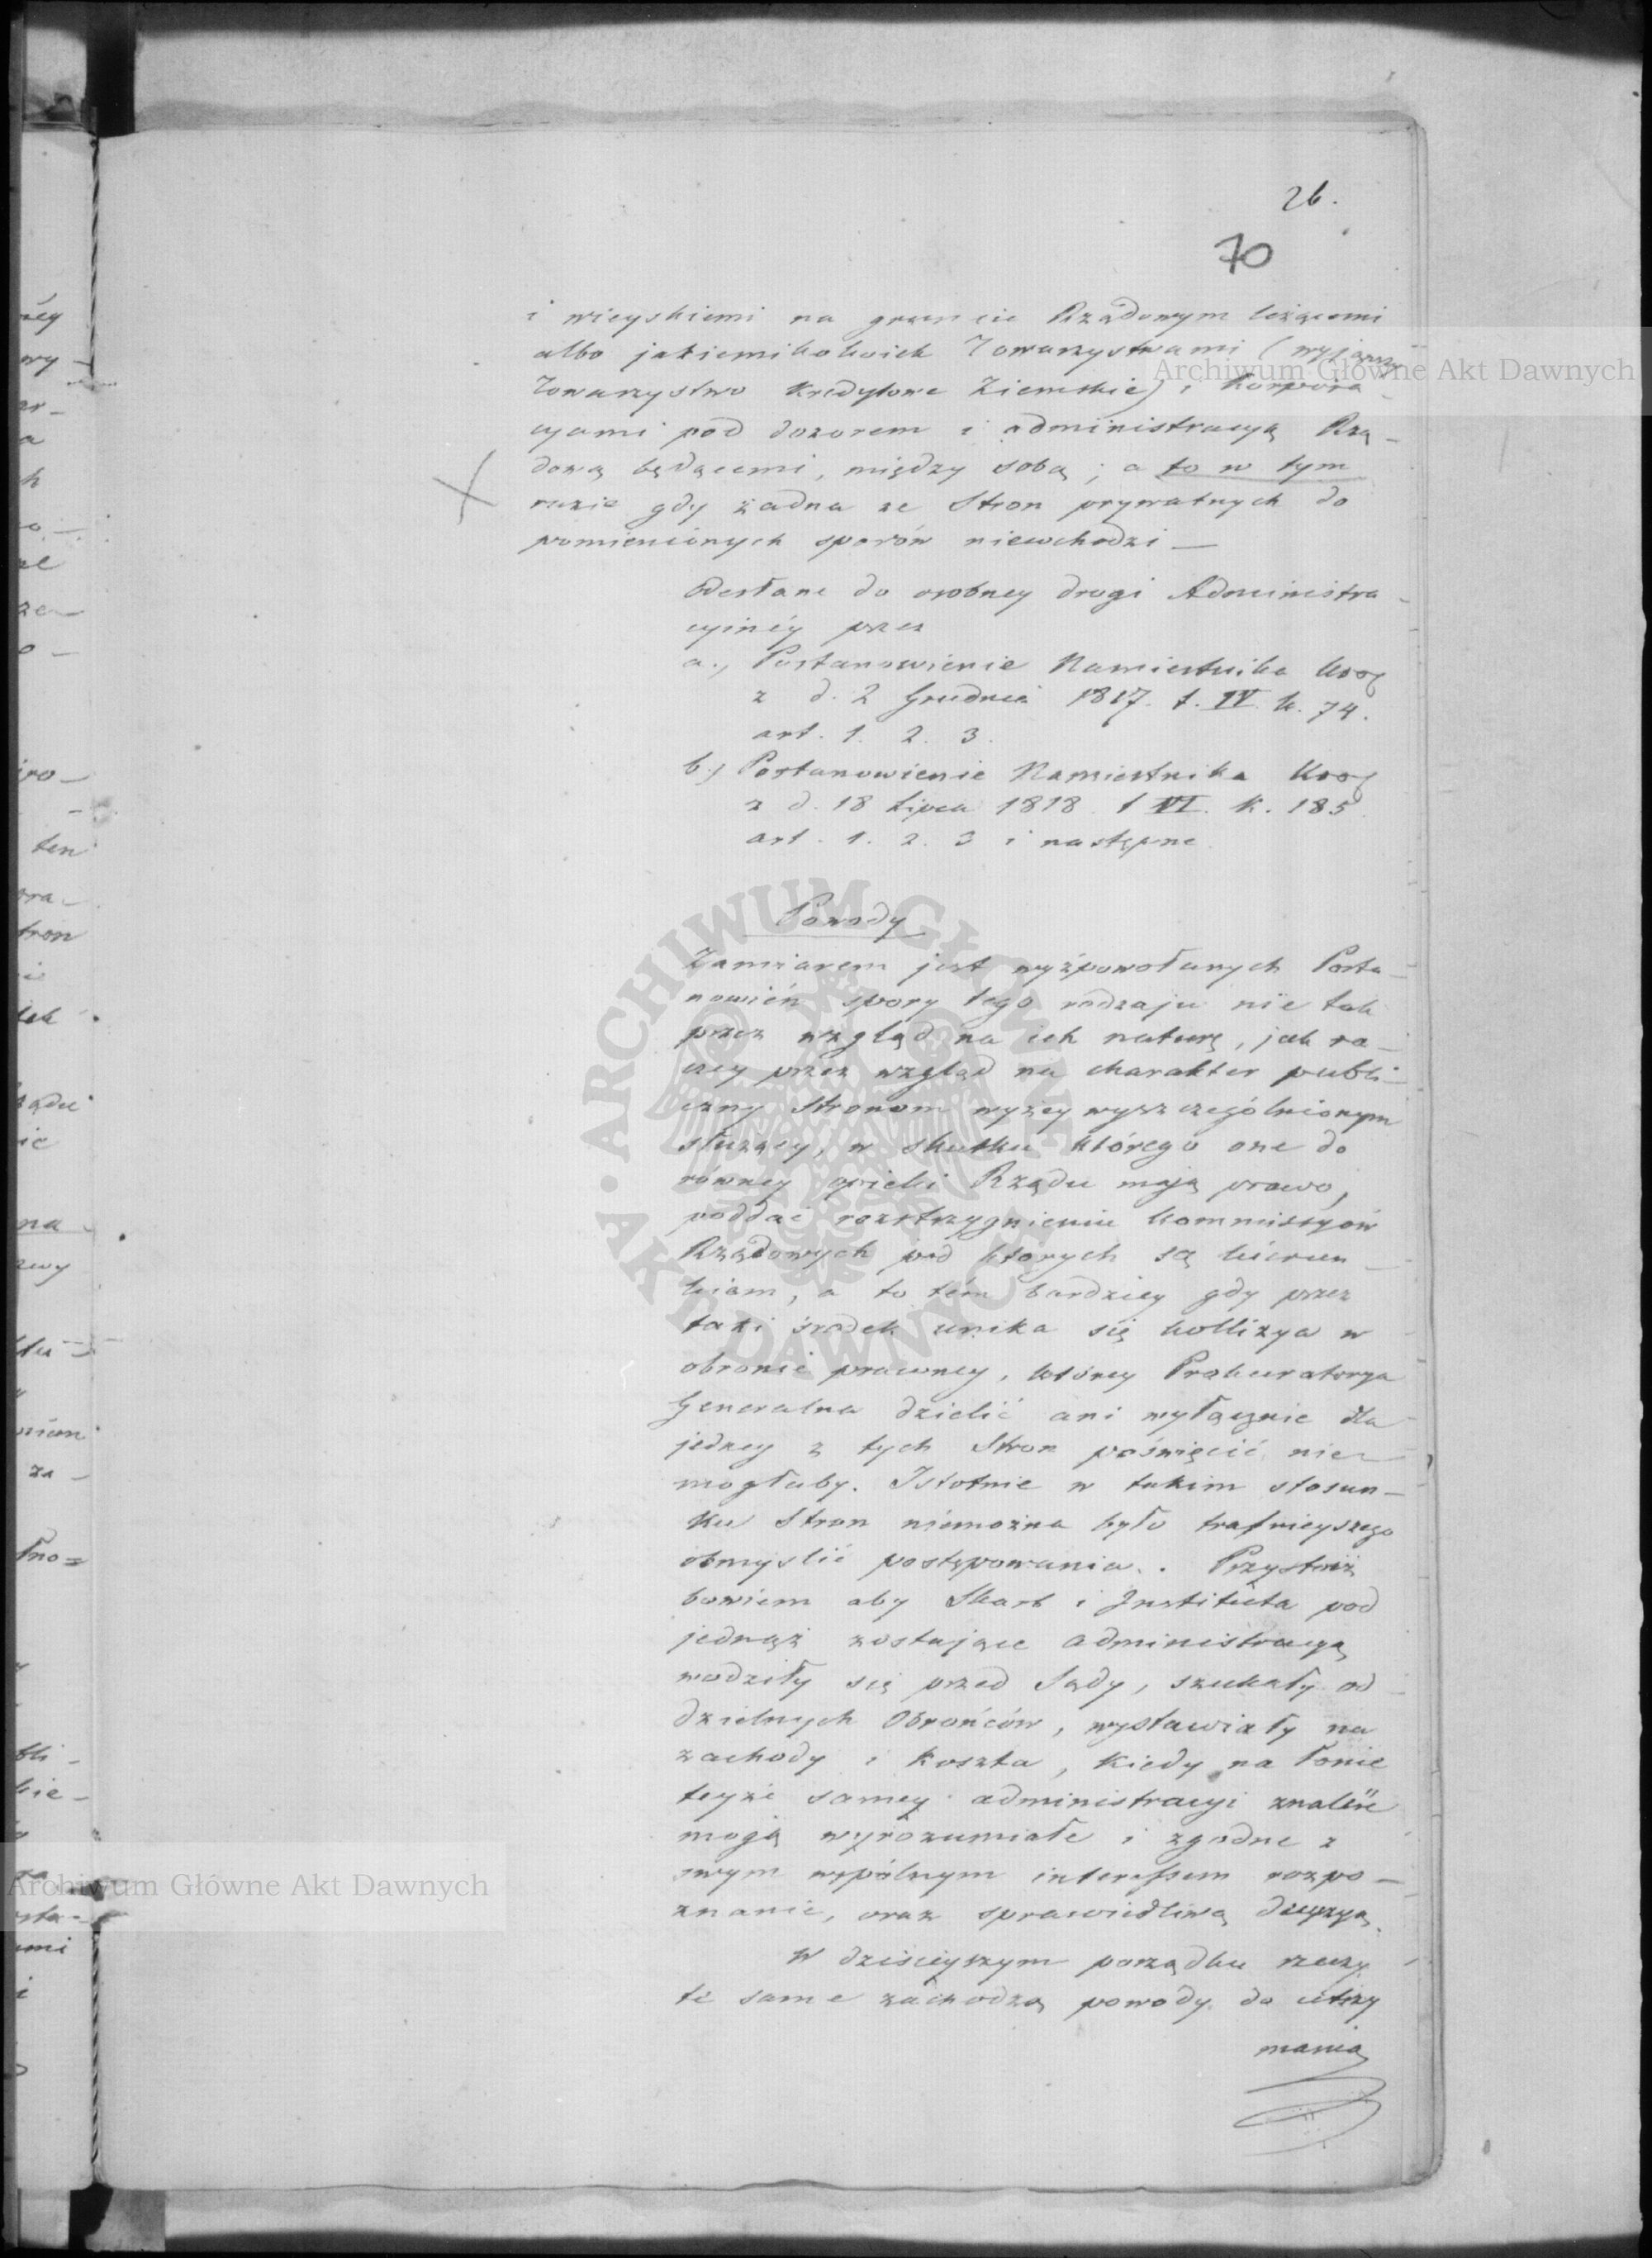 26.
70
i wieyskiemi na gruncie Rządowym leżącemi
albo jakiemikolwiek Towarzystwami (wyjąwszy
Towarzystwo Kredytowe Ziemskie) i Korpora-
cyami pod dozorem i administracyą Rzą-
dową będącemi, między sobą; a to w tym
razie gdy żadna ze Stron prywatnych do
pomienionych sporów niewchodzi —
Odesłane do osobney drogi Administra-
cyinéy przez
a., Postanowienie Namiestnika
z d. 2 Grudnia 1817. t. IV. k. 74.
art. 1. 2. 3.
b., Postanowienie Namiestnika
z d. 18 Lipca 1818. t VI. k. 185
art. 1. 2. 3 i następne.
Powody
Zamiarem jest wyżpowołanych Posta-
nowień spory tego rodzaju nie tak
przez wzgląd na ich naturę, jak ra-
czey przez wzgląd na charakter publi-
czny Stronom wyżey wyszczególnionym
służący, w skutku którego one do
równey opieki Rządu mają prawo,
poddać rozstrzygnieniu Kommissyów
Rządowych pod których są kierun-
kiem, a to tém bardziey gdy przez
taki środek unika się kollizya w
obronie prawney, którey Prokuratorya
Generalna dzielić ani wyłącznie dla
jedney z tych Stron poświęcić nie
mogłaby. Istotnie w takim stosun-
ku Stron niemożna było trafnieyszego
obmyślić postępowania.
bowiem aby Skarb i Instituta pod
jednąż zostające administracyą
wodziły się przed Sądy, szukały od
dzielnych Obrońców, wystawiały na
zachody i koszta, kiedy na łonie
teyże samey administracyi znaleść
mogą wyrozumiałe i zgodne z
swym wspólnym interessem rozpo-
znanie, oraz sprawiedliwą decyzyą.
W dzisieyszym porządku rzeczy
te same zachodzą powody do utrzy
mania
Archiwum Główne Akt Dawnych
ARCHIWUM GŁÓWNE AKT DAWNYCH
Archiwum Główne Akt Dawnych